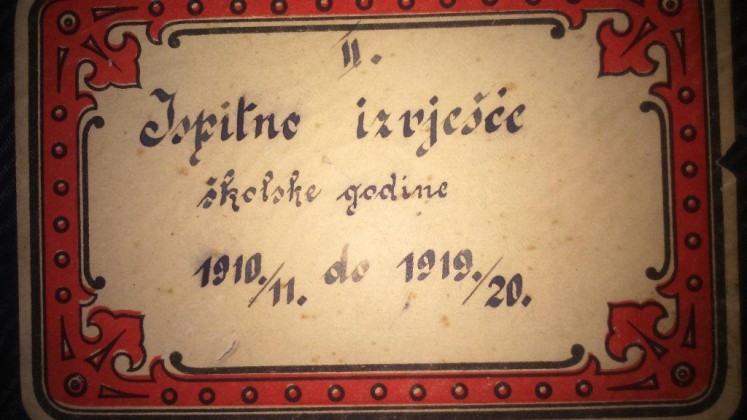 II.
Ispitno izvješće
školske godine
1910./11. do 1919./20.